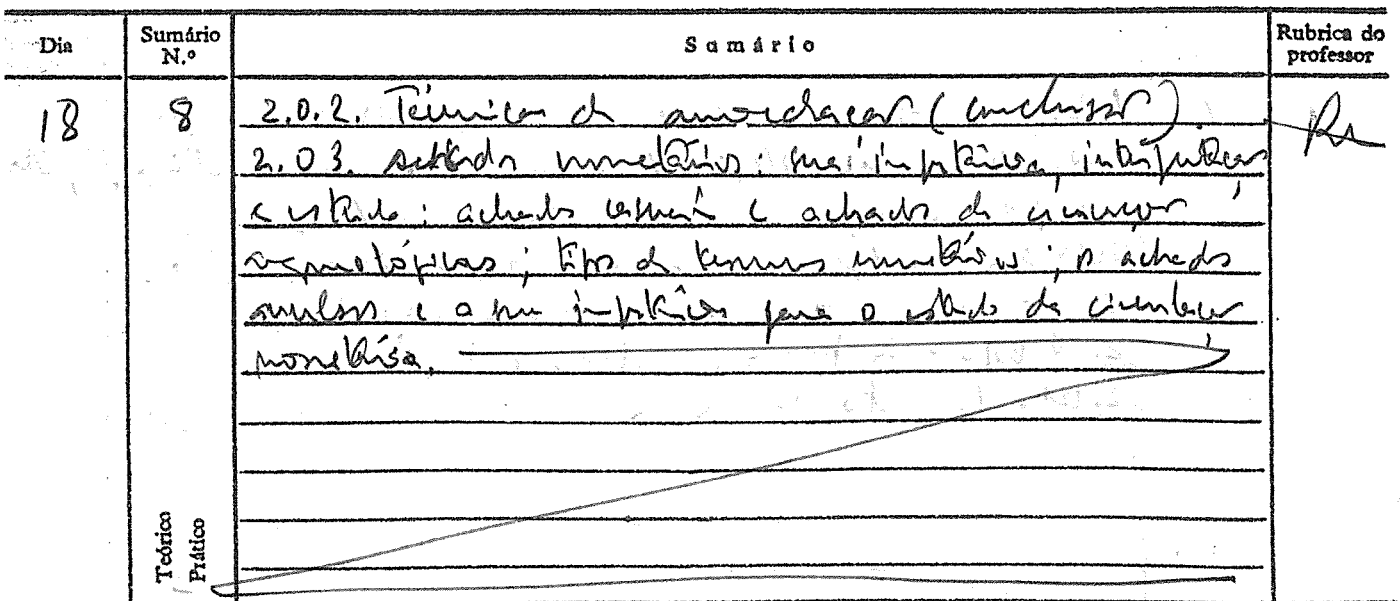 Dia Sumário N.º Sumário Rubrica do professor
18 8 2.0.2. Técnicas de amoedação (conclusão).
2.03. achados monetários: sua importância, interpretação
e estudo; achados e achados de
arqueológicas; tipos de tesouros monetários; os achados
avulsos e a sua importância para o estudo da circulação
monetária.
Teórico
Prático